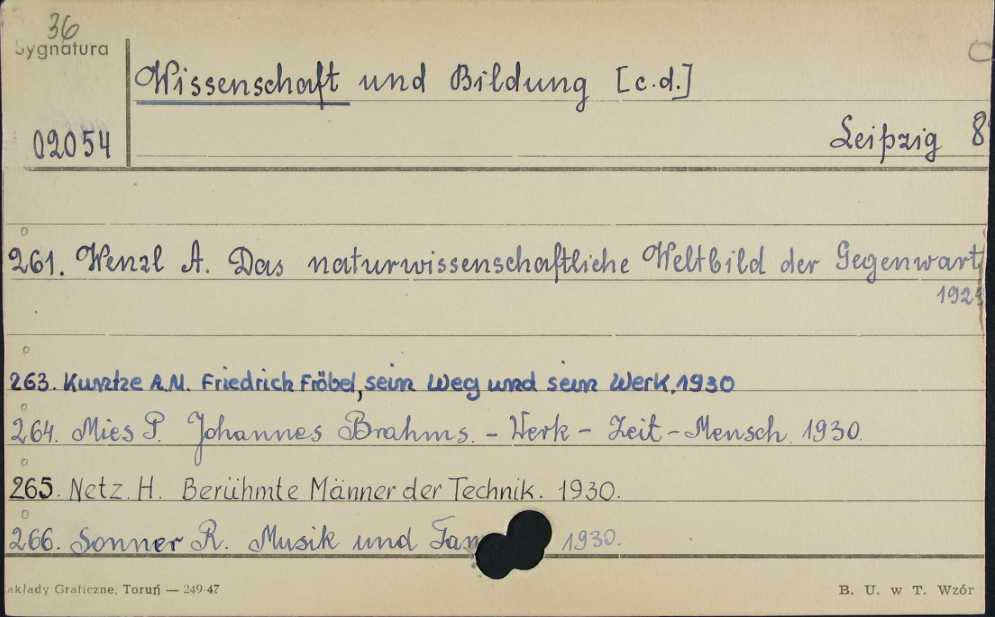 36
Sygnatura
Wissenschaft und Bildung [c.d.]
02054
Leipzig 8°
261. Wenzl A. Das naturwissenschaftliche Weltbild der Gegenwart
263. Kuntze A.M. Friedrich Fröbel, sein Weg und sein Werk. 1930
264. Mies P. Johannes Brahms. - Werk - Zeit - Mensch. 1930.
265. Netz H. Berühmte Männer der Technik. 1930.
266. Sonner R. Musik und 1930.
akłady Graficzne, Toruń — 249-47
B. U. w T. Wzór